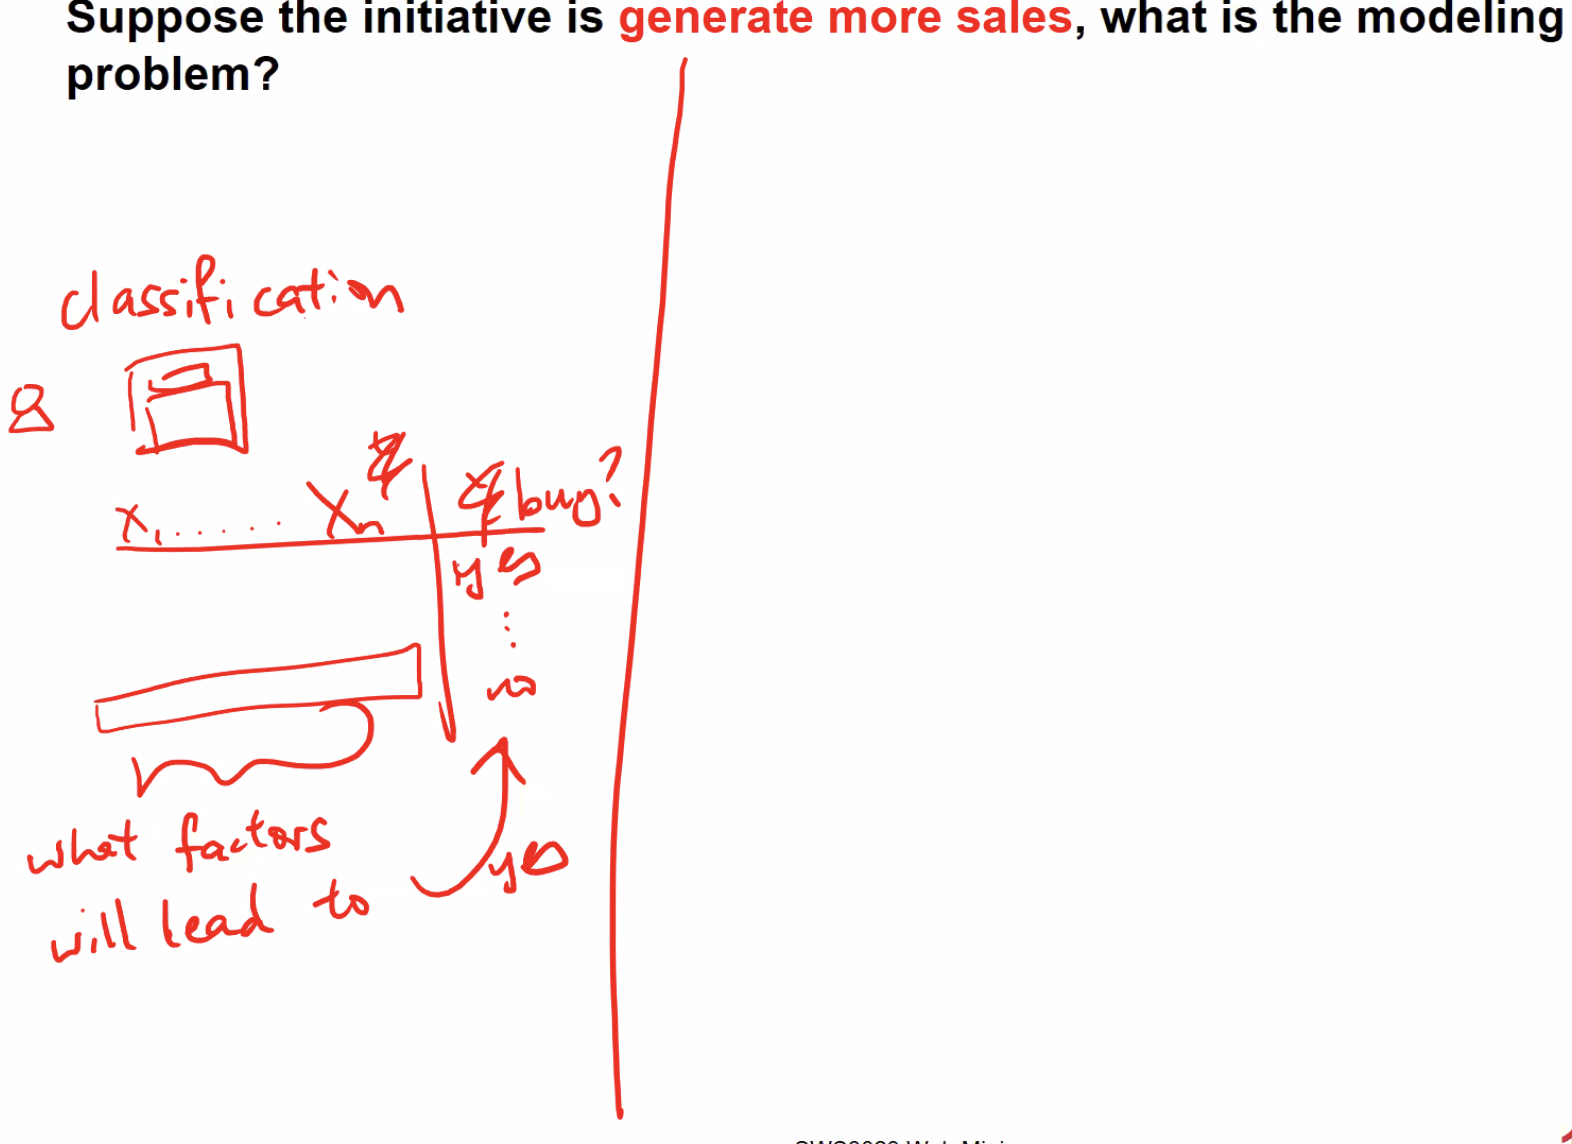 Suppose the initiative is generate more sales, what is the modeling
problem?
classification
x₁ ...... Xn buy?
yes
no
what factors
will lead to yes